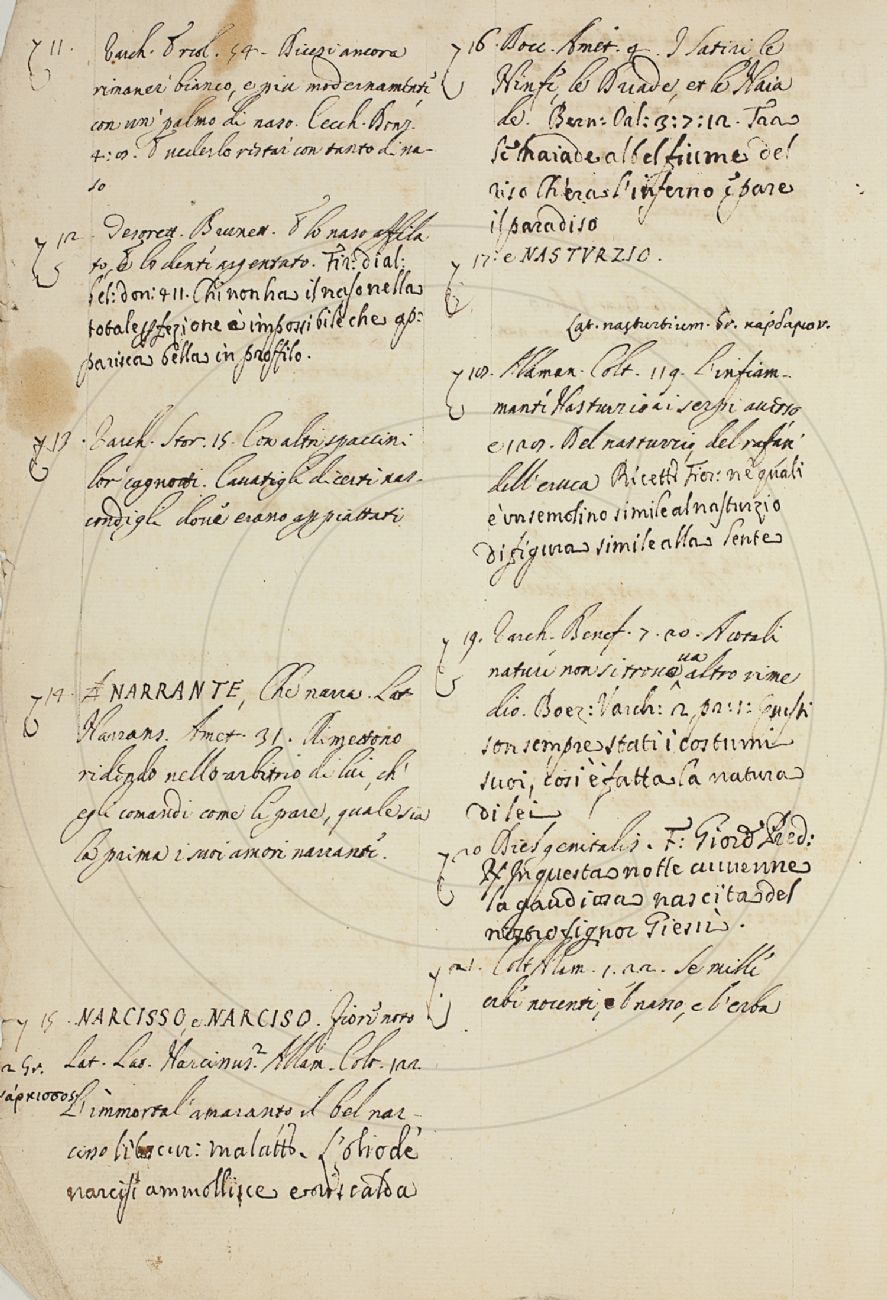 11. Varch. Ercol. 54. Dicesi ancora
rimaner bianco, e piu modernamente
con un palmo di naso. Cecch. Donz.
4: 8. E vederlo restar con tanto di na-
so
12. Tesoret. Brunet. E lo naso affila
to, E lo dente argentato. Fir: dial:
bel: don: 411. Chi non ha il naso nella
total perfezione è impossibile che ap:
parisca bella in proffilo.
13. Varch. Stor. 15. Con altri spaccini
lor cagnotti. Cavatigli di certi nas-
condigli dove erano appiattati
14. NARRANTE, Che narra. Lat.
Narrans. Amet. 31. Rimettono
ridendo nello arbitrio di lui, ch'
egli comandi come li pare, quale sia
la prima i suoi amori narrante.
15. NARCISSO, e NARCISO. Fiore noto
Lat. Narcissus. Allam. Colt. 122
Gr.
νάρκισσος
L'immortal' amaranto il bel nar-
ciso lib. cur: malatt. L'olio de
narcisi ammollisce e riscalda
16. Bocc. Amet. 9. I Satiri le
Ninfe, le Driade, et le Naia
de. Bern: Orl: 3: 7: 12. Tra
le naiade al bel fiume del
riso Ch'era l'inferno e pare
il paradiso
17. e NASTVRZIO.
Lat. nasturtium. Gr. κάρδαμον.
18. Alaman. Colt. 119. L'infiam-
mante Nasturzio ai serpi averso
e 128. Del nasturzio, del rafan'
dell'eruca Ricett. Fior: ne quali
è un semolino simile al nasturzio
di figura simile alla lente
19. Varch. Benef. 7. 20. A cotali
nature non si trova altro rime
dio. Boez: Varch: 2, pr: 1: Questi
son sempre stati i costumi
suoi, cosi è fatta la natura
di lei
20 Dies genitalis. F: Giord. Pred:
In questa notte avvenne
la gaudiosa nascita del
nostro signor Giesù.
21. Colt. Alam. 1. 22. Se mille
erbe nocenti, e'l nasso, e l'erba